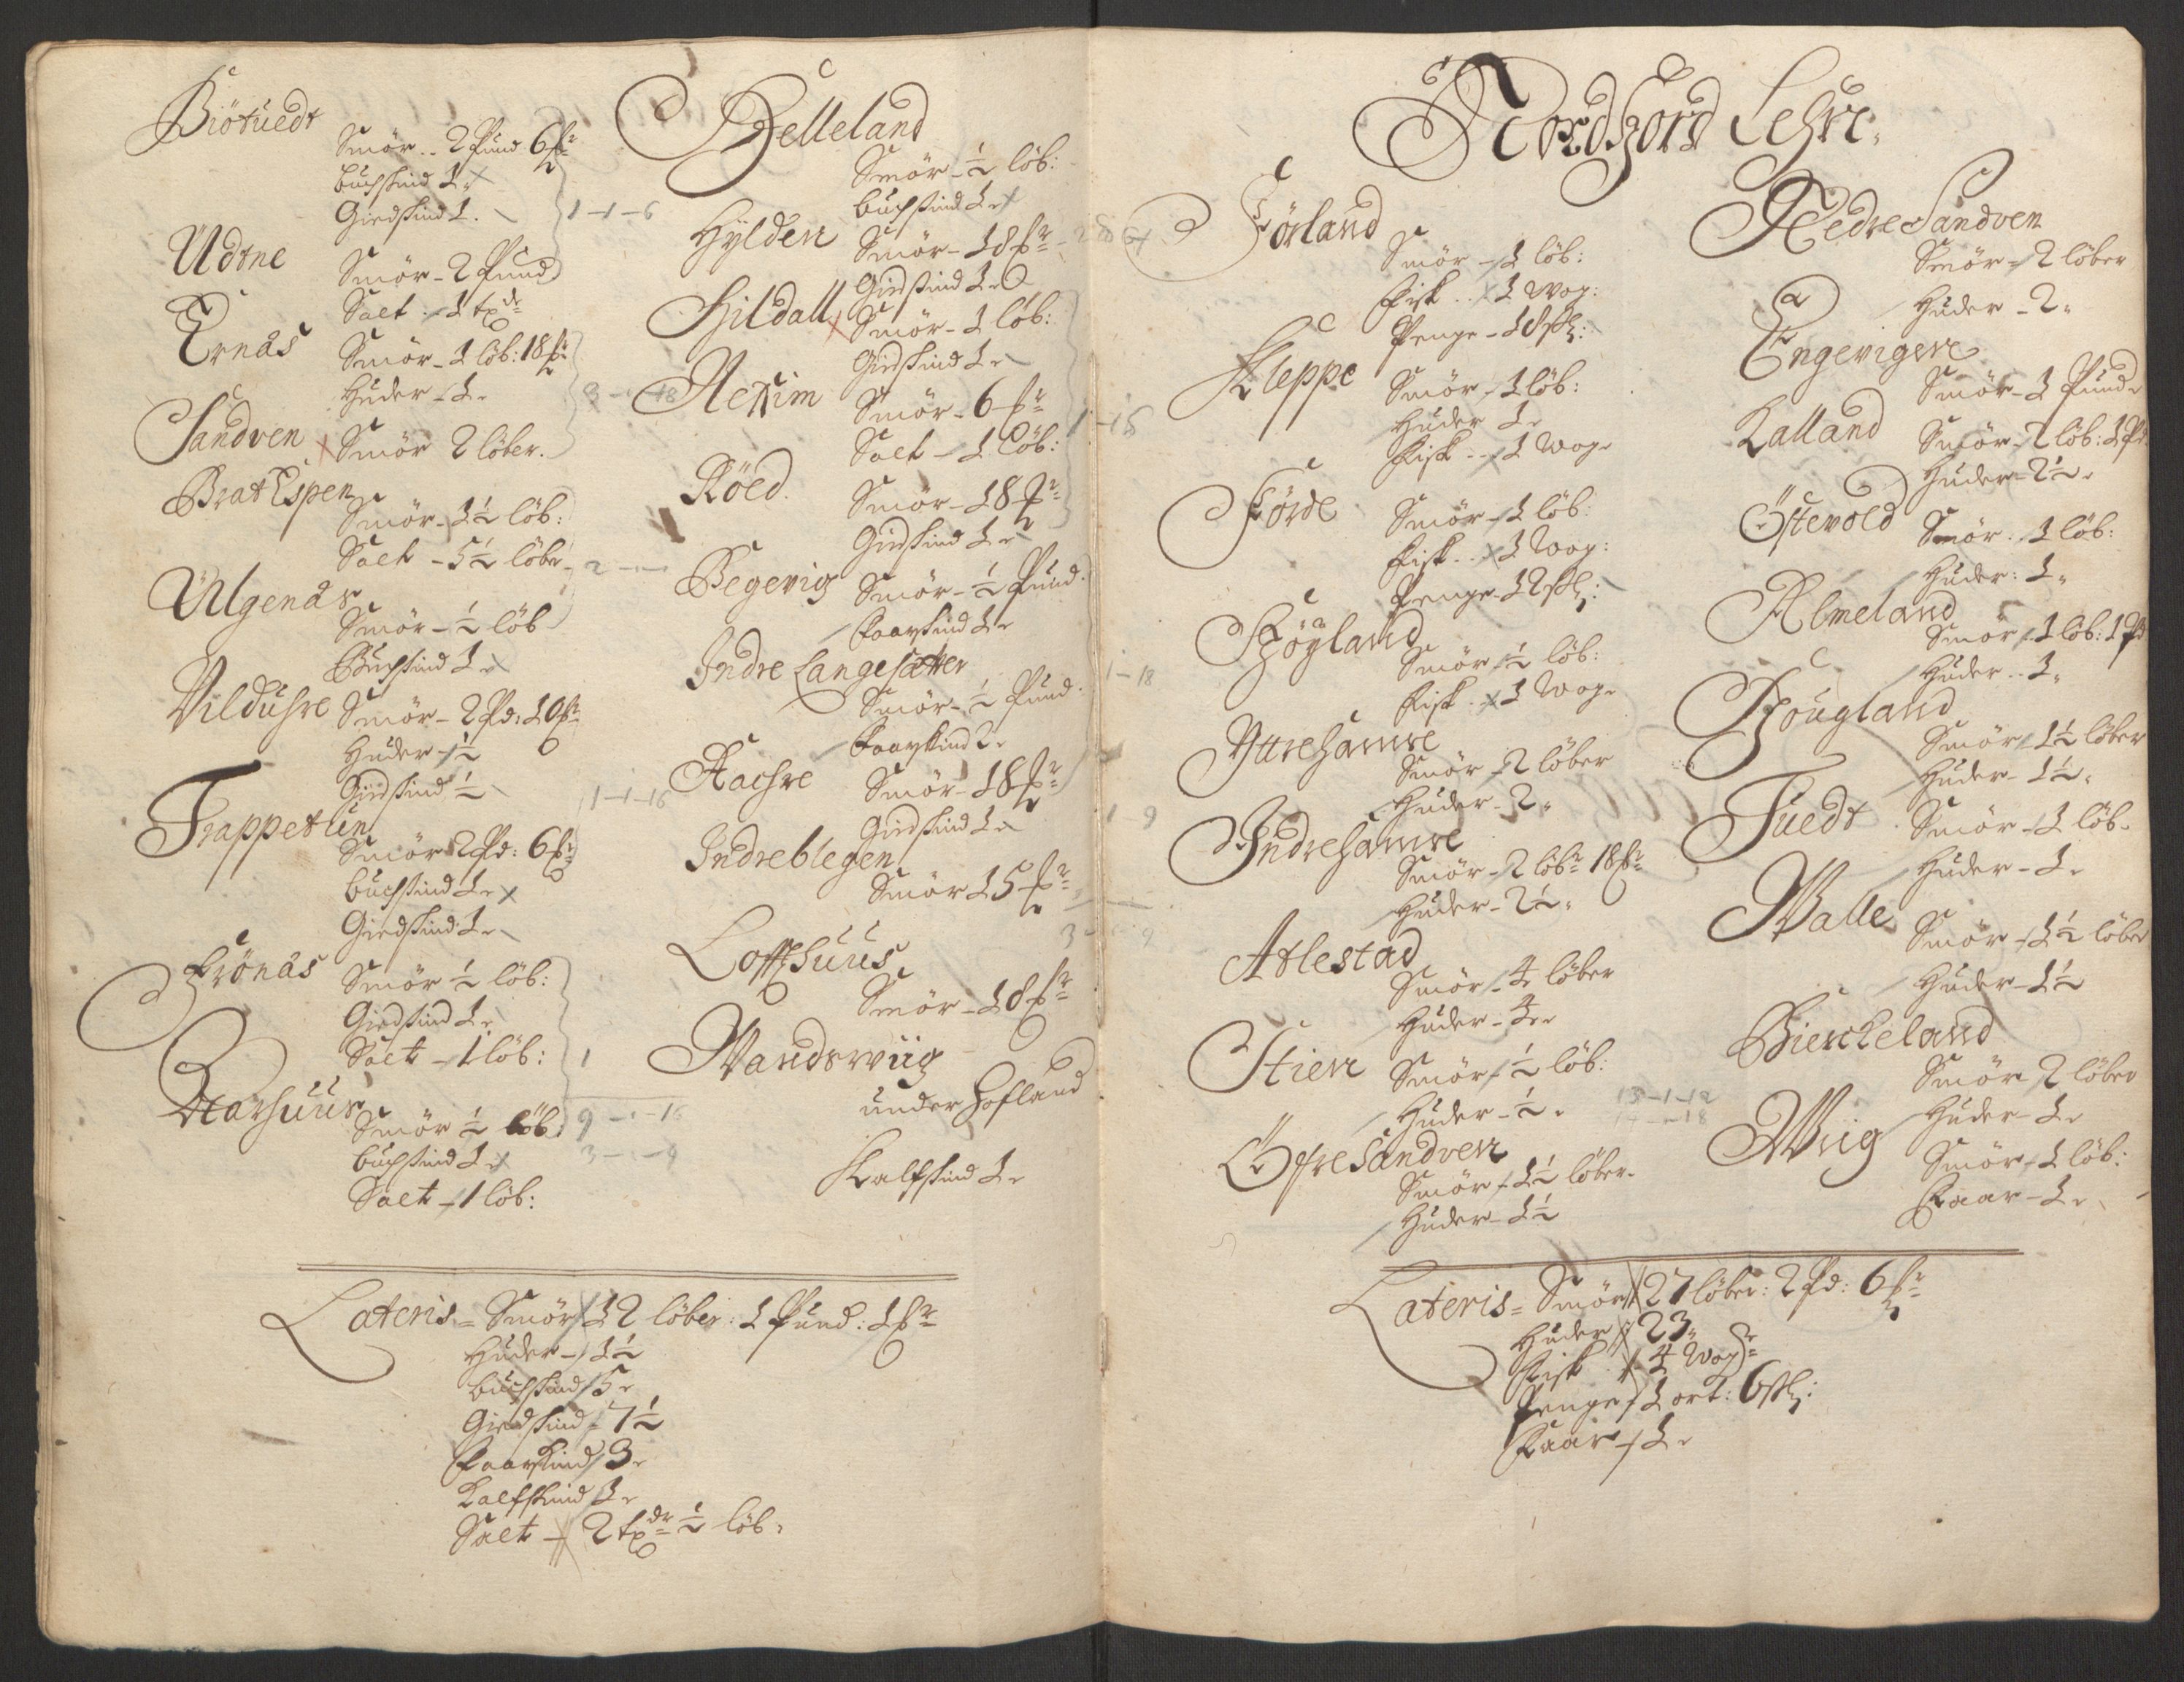 Biötuedt
Smör.. 2 Pund 6 ßr
buchskind 1.
Giedskind 1.
1-1-6
Udtne
Smör - 2 Pund
Salt - 1 tdr
Ernås
Smör - 1 löb: 18 ßr
Huder - 1.
Sandven
Smör 2 löber.
BratEspen
Smör - 1½ löb:
Salt - 5½ löber
2
Ulgenås
Smör - ½ löb
Buchskind 1.
Vilduhre
Smör - 2 Pd: 10 ßr
Huder - ½
Giedskind ½
1-1-16
Trappetun
Smör 2 Pd: 6 ßr
buchskind 1.
Giedskind 1.
Frönås
Smör ½ löb:
Giedskind 1.
Salt - 1 löb:
1
Aarhuus
Smör ½ löb:
buchskind 1.
Salt - 1 löb:
Helleland
Smör - ½ löb:
buchskind 1.
Hylden
Smör - 18 ßr
Giedskind 1.
Hildall
Smör - 1 löb:
Giedskind 1.
Aexim
Smör - 6 ßr
Salt - 1 löb:
Röed.
Smör - 18 ßr
Giedskind 1.
Begevig
Smör - ½ Pund.
Faarskind 1.
Indre Langesæter
Smör - ½ Pund.
Faarskind 2.
Aachre
Smör - 18 ßr
Giedskind 1.
Indreblegen
Smör 15 ßr
Loffthuus
Smör - 18 ßr
Wandswiig
under Hofland
Kalfskind 1.
Lateris = Smör 12 löber: 1 Pund: 1 ßr
Huder - 1½
buchskind 5.
Giedskind - 7½
Faarskind 3.
Kalfskind 1.
Salt - 2 tdr ½ löb.
Nordfiord Lehn.
Förland
Smör - 1 löb:
Fisk .. 1 Wog:
Penge - 18 skl:
Kleppe
Smör - 1 löb:
Huder 1.
Fisk .. 1 Wog.
Förde
Smör - 1 löb:
Fisk .. 1 Wog:
Penge - 12 skl:
Högland
Smör ½ löb:
Fisk . 1 Wog.
Yttrehamre
Smör - 2 löber
Huder - 2.
Indrehamre
Smör - 2 löbr 18 ßr
Huder - 2½.
Atlestad
Smör - 4 löber
Huder - 4.
Stien
Smör ½ löb:
Huder - ½.
ÖfreSandven
Smör - 1½ löber.
Huder - 1½
Nedre Sandven
Smör - 2 löber
Huder - 2.
Engevigen
Smör - 1 Pund.
Kalland
Smör - 2 löb: 1 Pd
Huder - 2½.
Östevold
Smör . 1 löb:
Huder: 1.
Almeland
Smör 1 löb: 1 Pd
Huder .. 1.
Hougland
Smör 1½ löber
Huder - 1½.
Tuedt
Smör - 1 löb.
Huder - 1.
Walle
Smör - 1½ löber
Huder - 1½
Bierckeland
Smör 2 löber
Huder - 1.
Wiig
Smör - 1 löb:
Faar - 1.
Lateris = Smör 27 löber: 2 Pd: 6 ßr
Huder 23.
Fisk 4 Wogr
Penge 1 ort: 6 skl:
Faar - 1.